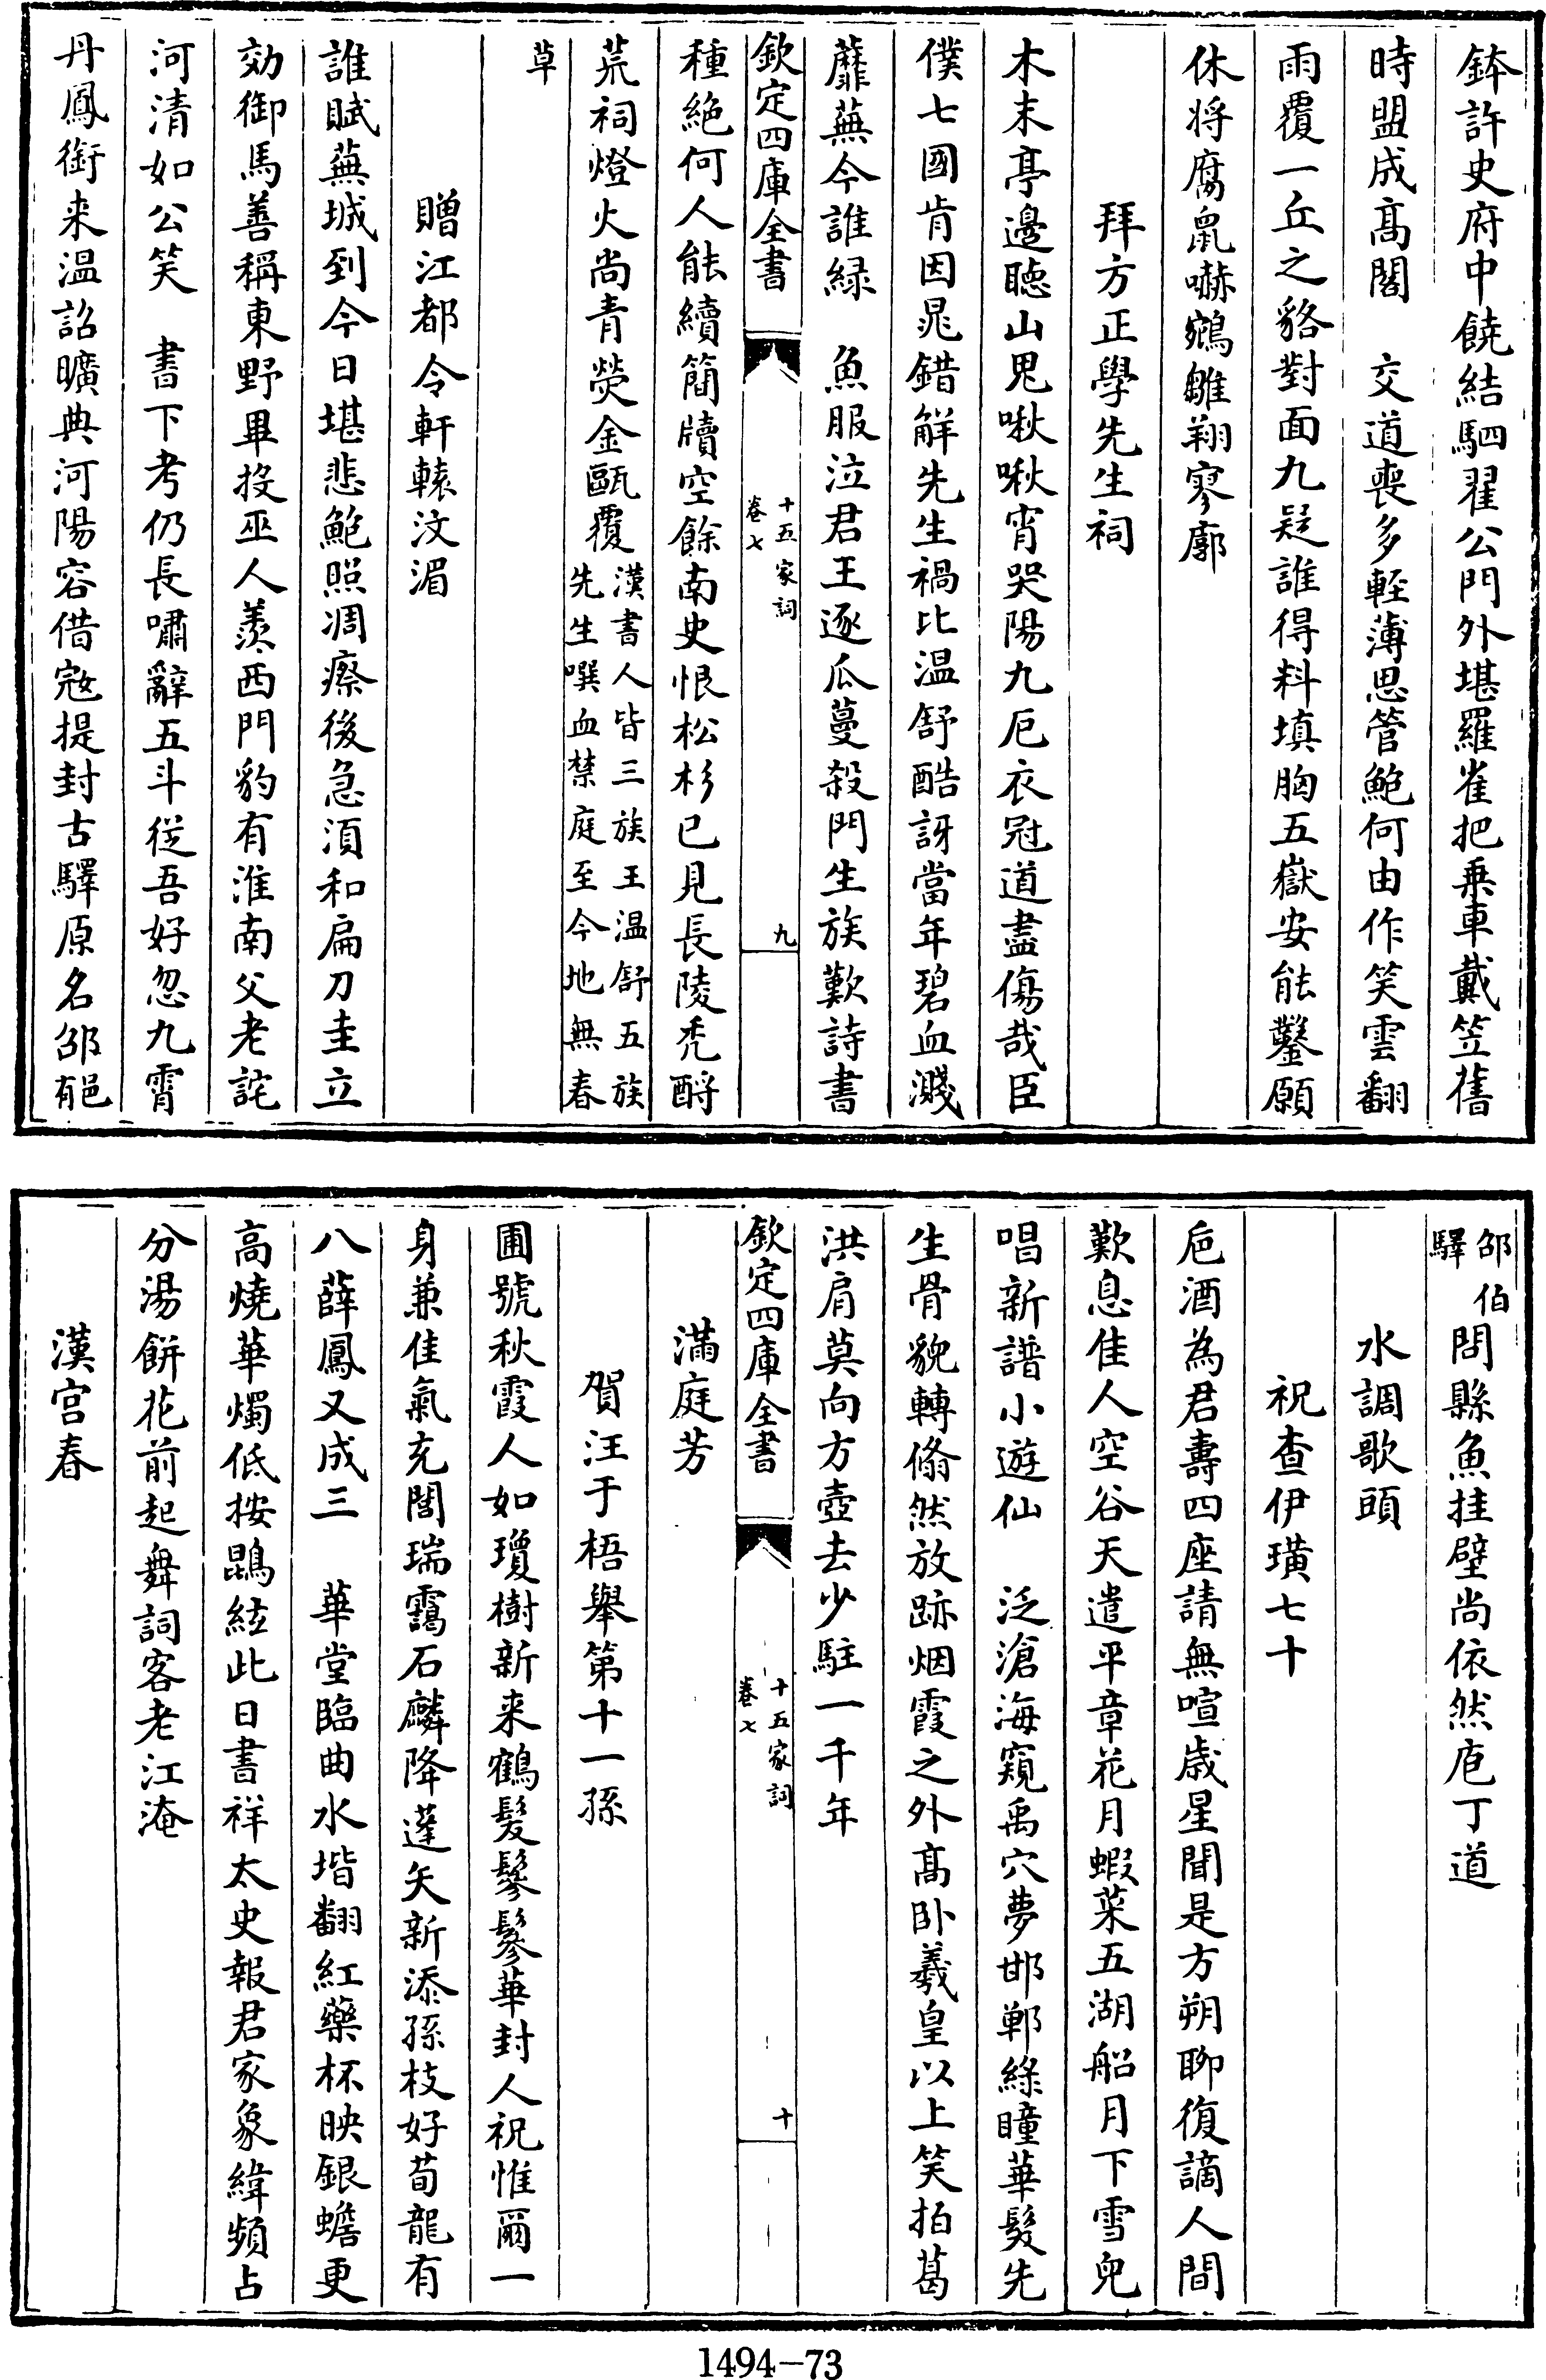 鉢許史府中饒結駟翟公門外堪羅雀把乗車戴笠舊
時盟成髙閣　交道喪多輕薄思管鮑何由作笑雲翻
雨覆一丘之貉對面九疑誰得料填胸五嶽安能鑿願
休将腐鼠嚇鵷雛翔寥廓
拜方正學先生祠
木末亭邊聴山鬼啾啾宵哭陽九厄衣冠道盡傷哉臣
僕七國肯因晁錯觧先生禍比温舒酷訝當年碧血濺
蘼蕪今誰緑　魚服泣君王逐瓜蔓殺門生族歎詩書
欽定四庫全書
十五家詞
卷七
九
種絶何人能續簡牘空餘南史恨松杉已見長陵秃酹
荒祠燈火尚青熒金甌覆
漢書人皆三族王温舒五族
先生噀血禁庭至今地無春
草
贈江都令軒轅汶湄
誰賦蕪城到今日堪悲鮑照凋瘵後急湏和扁刀圭立
効御馬善稱東野畢投巫人羨西門豹有淮南父老詫
河清如公笑　書下考仍長嘯辭五斗從吾好忽九霄
丹鳳銜来温詔曠典河陽容借宼提封古驛原名邵
邑
有
邵伯
驛
問縣魚挂壁尚依然庖丁道
水調歌頭
祝查伊璜七十
巵酒為君壽四座請無喧歳星聞是方朔聊復謫人間
歎息佳人空谷天遣平章花月蝦菜五湖船月下雪兒
唱新譜小遊仙　泛滄海窺禹穴夢邯鄲綠瞳華髮先
生骨貌轉翛然放跡烟霞之外髙卧羲皇以上笑拍葛
洪肩莫向方壺去少駐一千年
欽定四庫全書
十五家詞
卷七
十
滿庭芳
賀汪于梧舉第十一孫
圃號秋霞人如瓊樹新来鶴髮鬖鬖華封人祝惟爾一
身兼佳氣充閭瑞靄石麟降蓬矢新添孫枝好荀龍有
八薛鳳又成三　華堂臨曲水堦翻紅藥杯映銀蟾更
高燒華燭低按鵾絃此日書祥太史報君家象緯頻占
分湯餅花前起舞詞客老江淹
漢宫春
1494-73